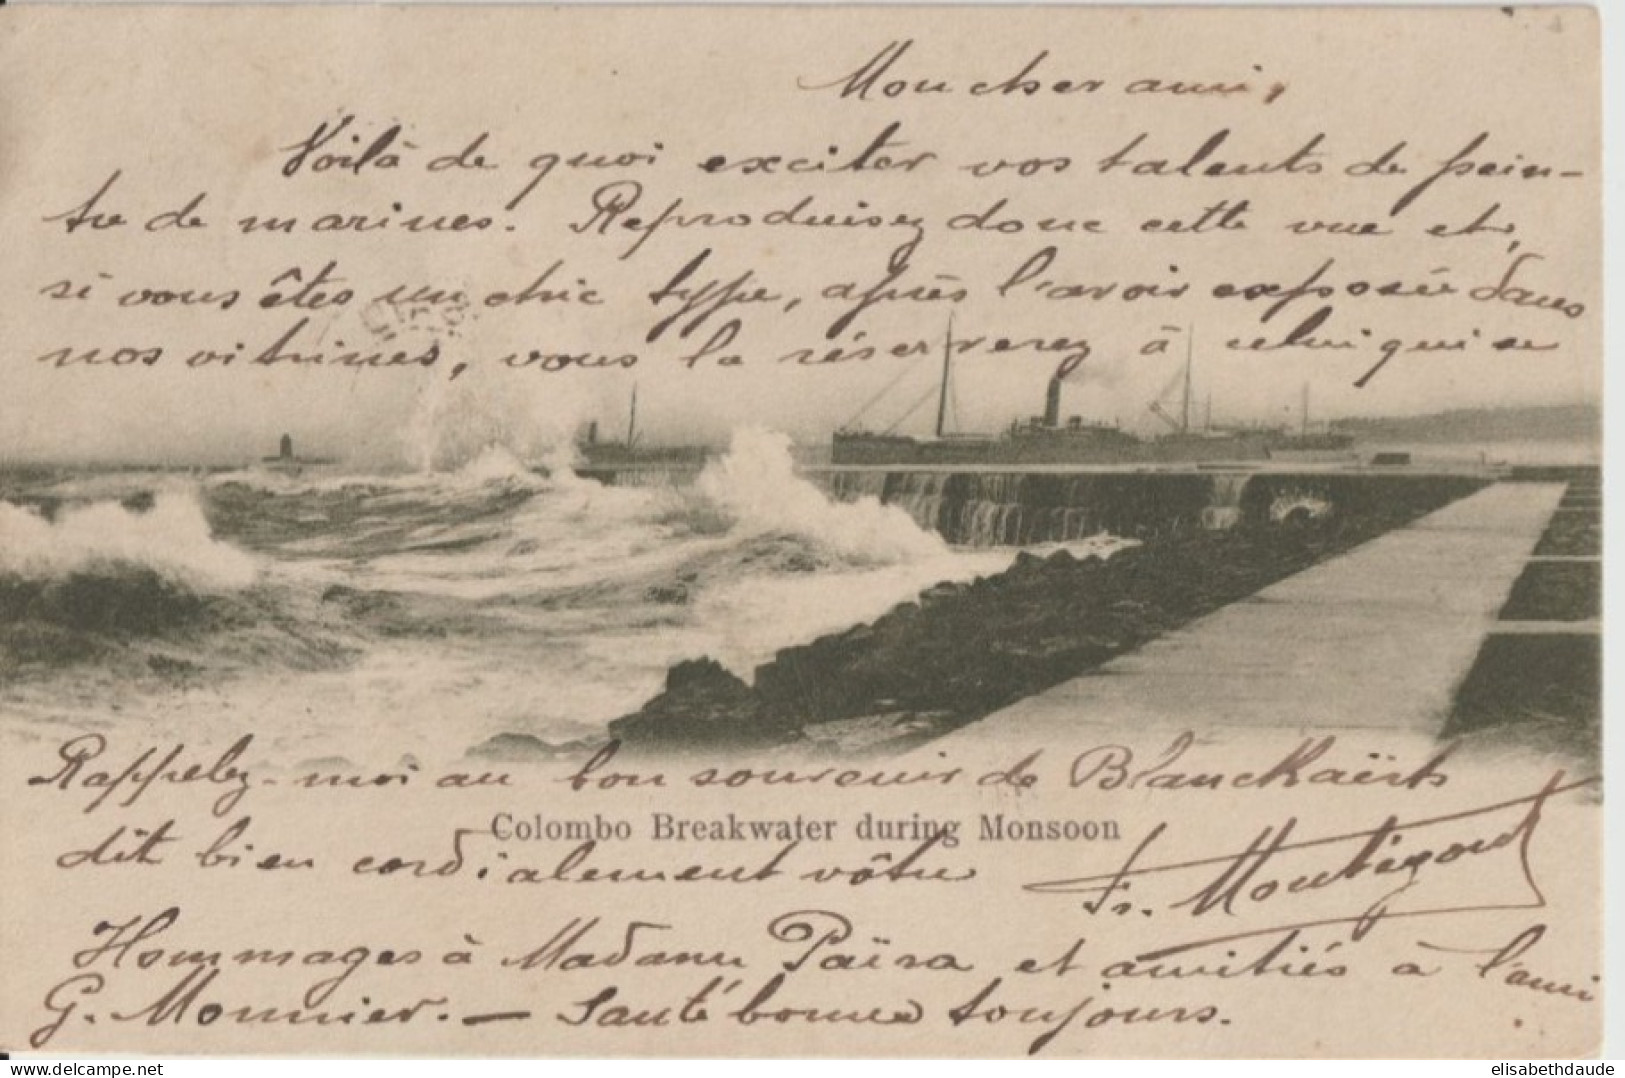 Mon cher ami,
Voilà de quoi exciter vos talents de pein-
tre de marines. Reproduisez donc cette vue et,
si vous êtes un chic type, après l'avoir exposée dans
nos vitrines, vous la réserverez à celui qui
Rappelez-moi au bon souvenir de Blanckaërts
Colombo Breakwater during Monsoon
dit bien cordialement vôtre
Fr. Montégout
Hommages à Madame Païva et amitiés à l'ami
G. Monnier. — Santé bonne toujours.
www.delcampe.net
elisabethdaude